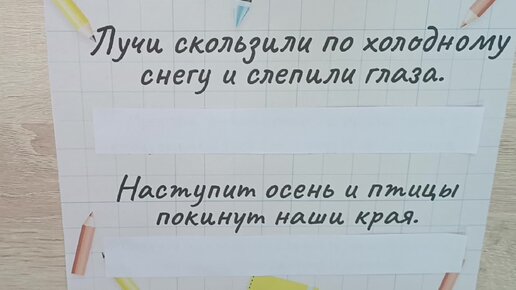 Лучи скользили по холодному
снегу и слепили глаза.
Наступит осень и птицы
покинут наши края.